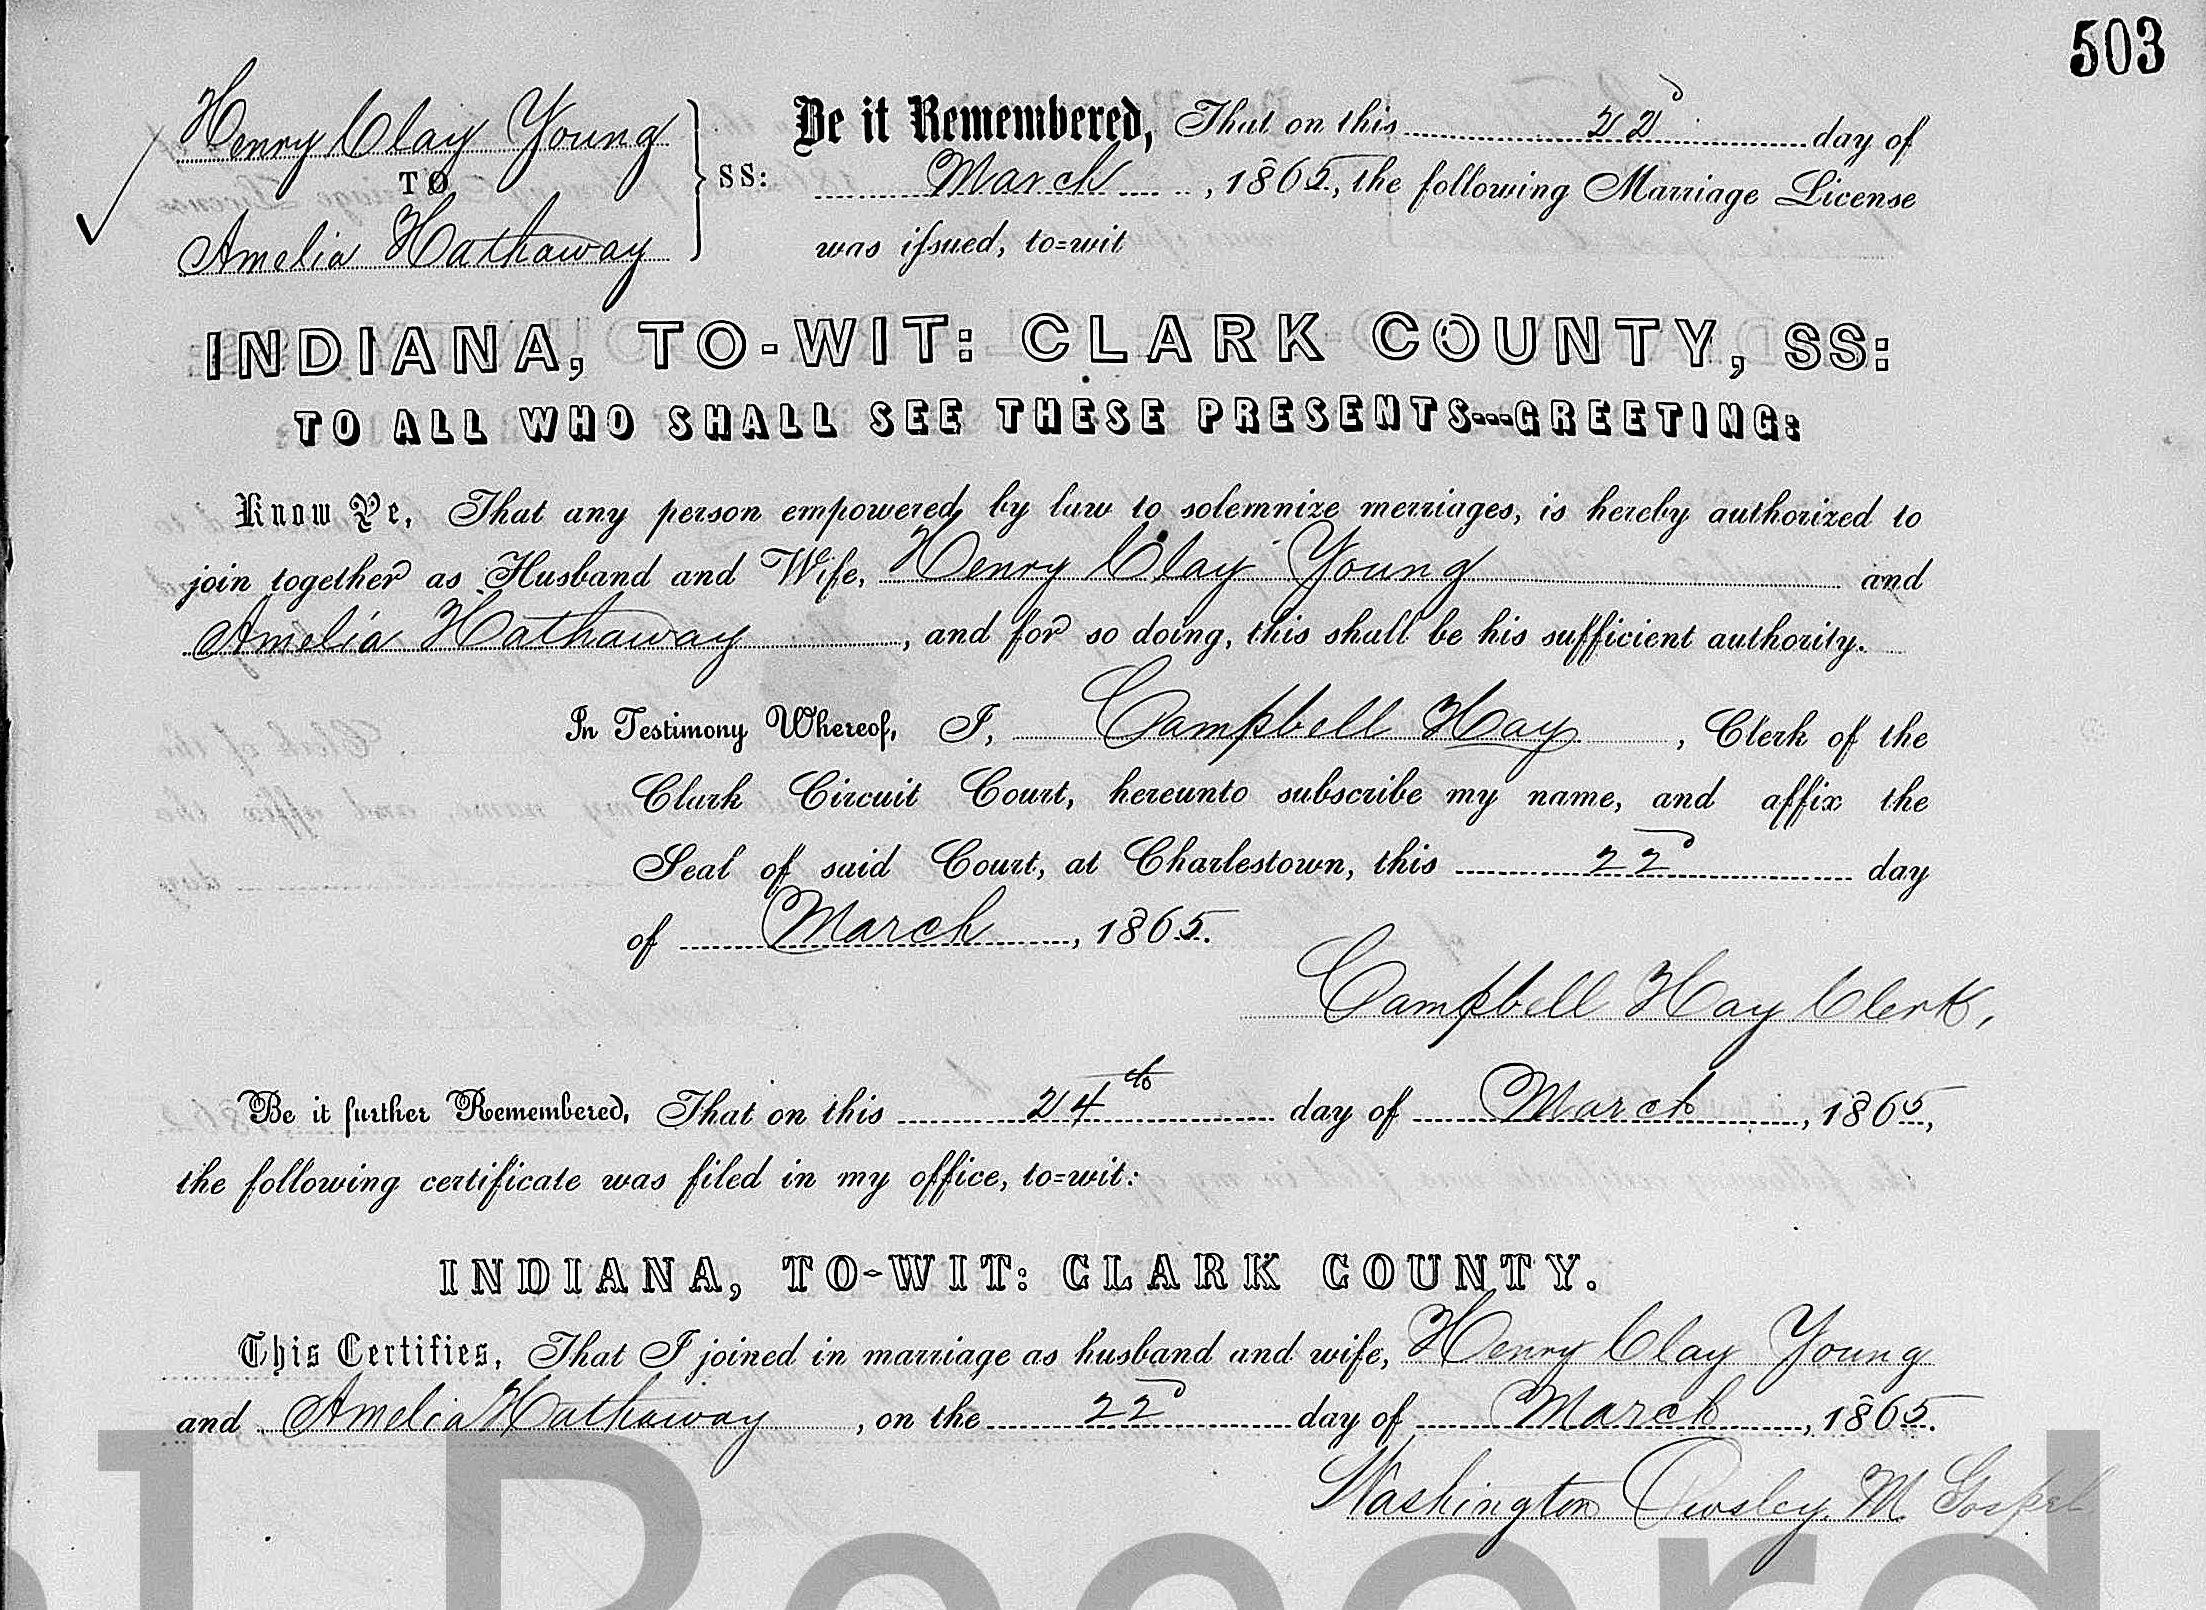 503
Henry Clay Young
TO
Amelia Hathaway
SS:
Be it Remembered, That on this 22d day of
March, 1865, the following Marriage License
was issued, to=wit
INDIANA, TO-WIT: CLARK COUNTY, SS:
TO ALL WHO SHALL SEE THESE PRESENTS---GREETING:
Know Ye, That any person empowered by law to solemnize merriages, is hereby authorized to
join together as Husband and Wife, Henry Clay Young and
Amelia Hathaway, and for so doing, this shall be his sufficient authority.
In Testimony Whereof, I, Campbell Hay, Clerk of the
Clark Circuit Court, hereunto subscribe my name, and affix the
Seal of said Court, at Charlestown, this 22d day
of March, 1865.
Campbell Hay Clerk,
Be it further Remembered, That on this 24th day of March, 1865,
the following certificate was filed in my office, to=wit:
INDIANA, TO-WIT: CLARK COUNTY.
This Certifies, That I joined in marriage as husband and wife, Henry Clay Young
and Amelia Hathaway, on the 22d day of March, 1865.
Washington Owsley. M. Gospel
l Record